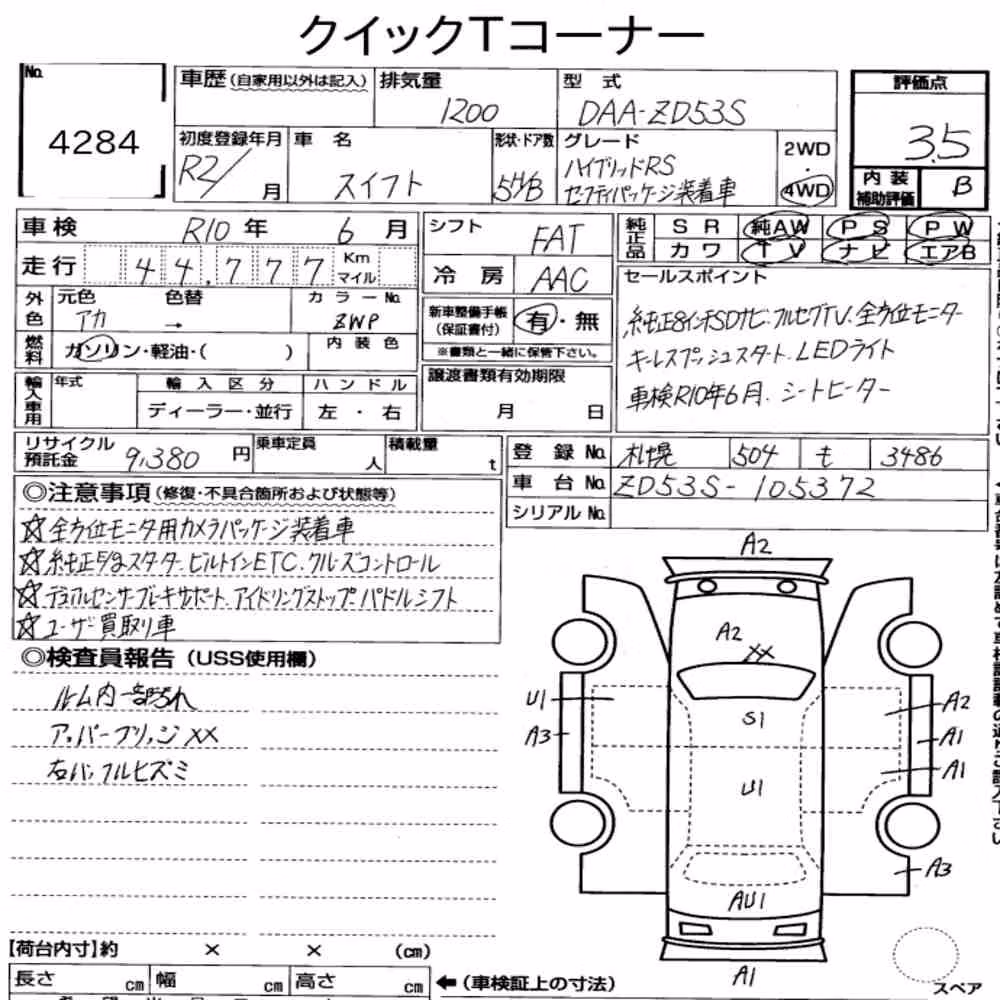 クイックTコーナー
No. 4284
車歴(自家用以外は記入) 排気量 1200 型 式 DAA-ZD53S 評価点 3.5
初度登録年月 R2/ 月 車 名 スイフト 形状・ドア数 5H/B グレード ハイブリッドRS セーフティパッケージ装着車 2WD・4WD 内装補助評価 B
車検 R10年 6月 シフト FAT 純正品 SR 純AW PS PW
走行 44,777 Km マイル 冷房 AAC カワ TV ナビ エアB
外色 元色 アカ 色替 → カラーNo. ZWP
新車整備手帳(保証書付) 有・無
※書類と一緒に保管下さい。
燃料 ガソリン・軽油・( ) 内装色
セールスポイント
純正8インチSDナビ.フルセグTV.全方位モニター
キーレスプッシュスタート.LEDライト
車検R10年6月.シートヒーター
輸入車用 年式 輸入区分 ディーラー・並行 ハンドル 左・右
譲渡書類有効期限 月 日
リサイクル預託金 9,380円 乗車定員 人 積載量 t
登録No. 札幌 504 も 3486
車台No. ZD53S-105372
シリアルNo.
◎注意事項(修復・不具合箇所および状態等)
☆全方位モニタ用カメラパッケージ装着車
☆純正5/9スターター.ビルトインETC.クルーズコントロール
☆デュアルセンサーブレーキサポート.アイドリングストップ.パドルシフト
☆ユーザー買取り車
◎検査員報告(USS使用欄)
ルーム内一部汚れ
アッパーブリッジXX
右バッフルヒズミ
A2
A2
XX
U1
S1
A2
A3
A1
A1
U1
A3
AU1
A1
スペア
【荷台内寸】約 × × (cm)
長さ cm 幅 cm 高さ cm ←(車検証上の寸法)